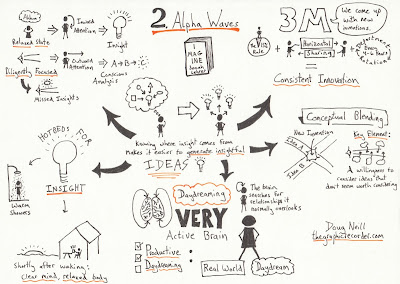 2. Alpha Waves
Alpha
Relaxed State
Inward
Attention
Insight
Diligently Focused
Outward
Attention
A→B→C
Conscious
Analysis
Missed Insights
I
MAG
INE
Jonah Lehrer
3M
We come up
with new
innovations.
The 15%
Rule
Horizontal
Sharing
Departments
Every
4-6 Years
Rotation
Consistent Innovation
Knowing where insight comes from
makes it easier to generate insightful
IDEAS
HOTBEDS FOR
INSIGHT
Warm
Showers
Shortly after waking:
clear mind, relaxed body
Daydreaming
VERY
Active Brain
Productive
Daydreaming
The brain
searches for
relationships it
normally overlooks
Real World
Daydream
Conceptual Blending
New Invention
Idea A
Idea B
Key Element:
A willingness to
consider ideas that
don't seem worth considering
Doug Neill
thegraphicrecorder.com